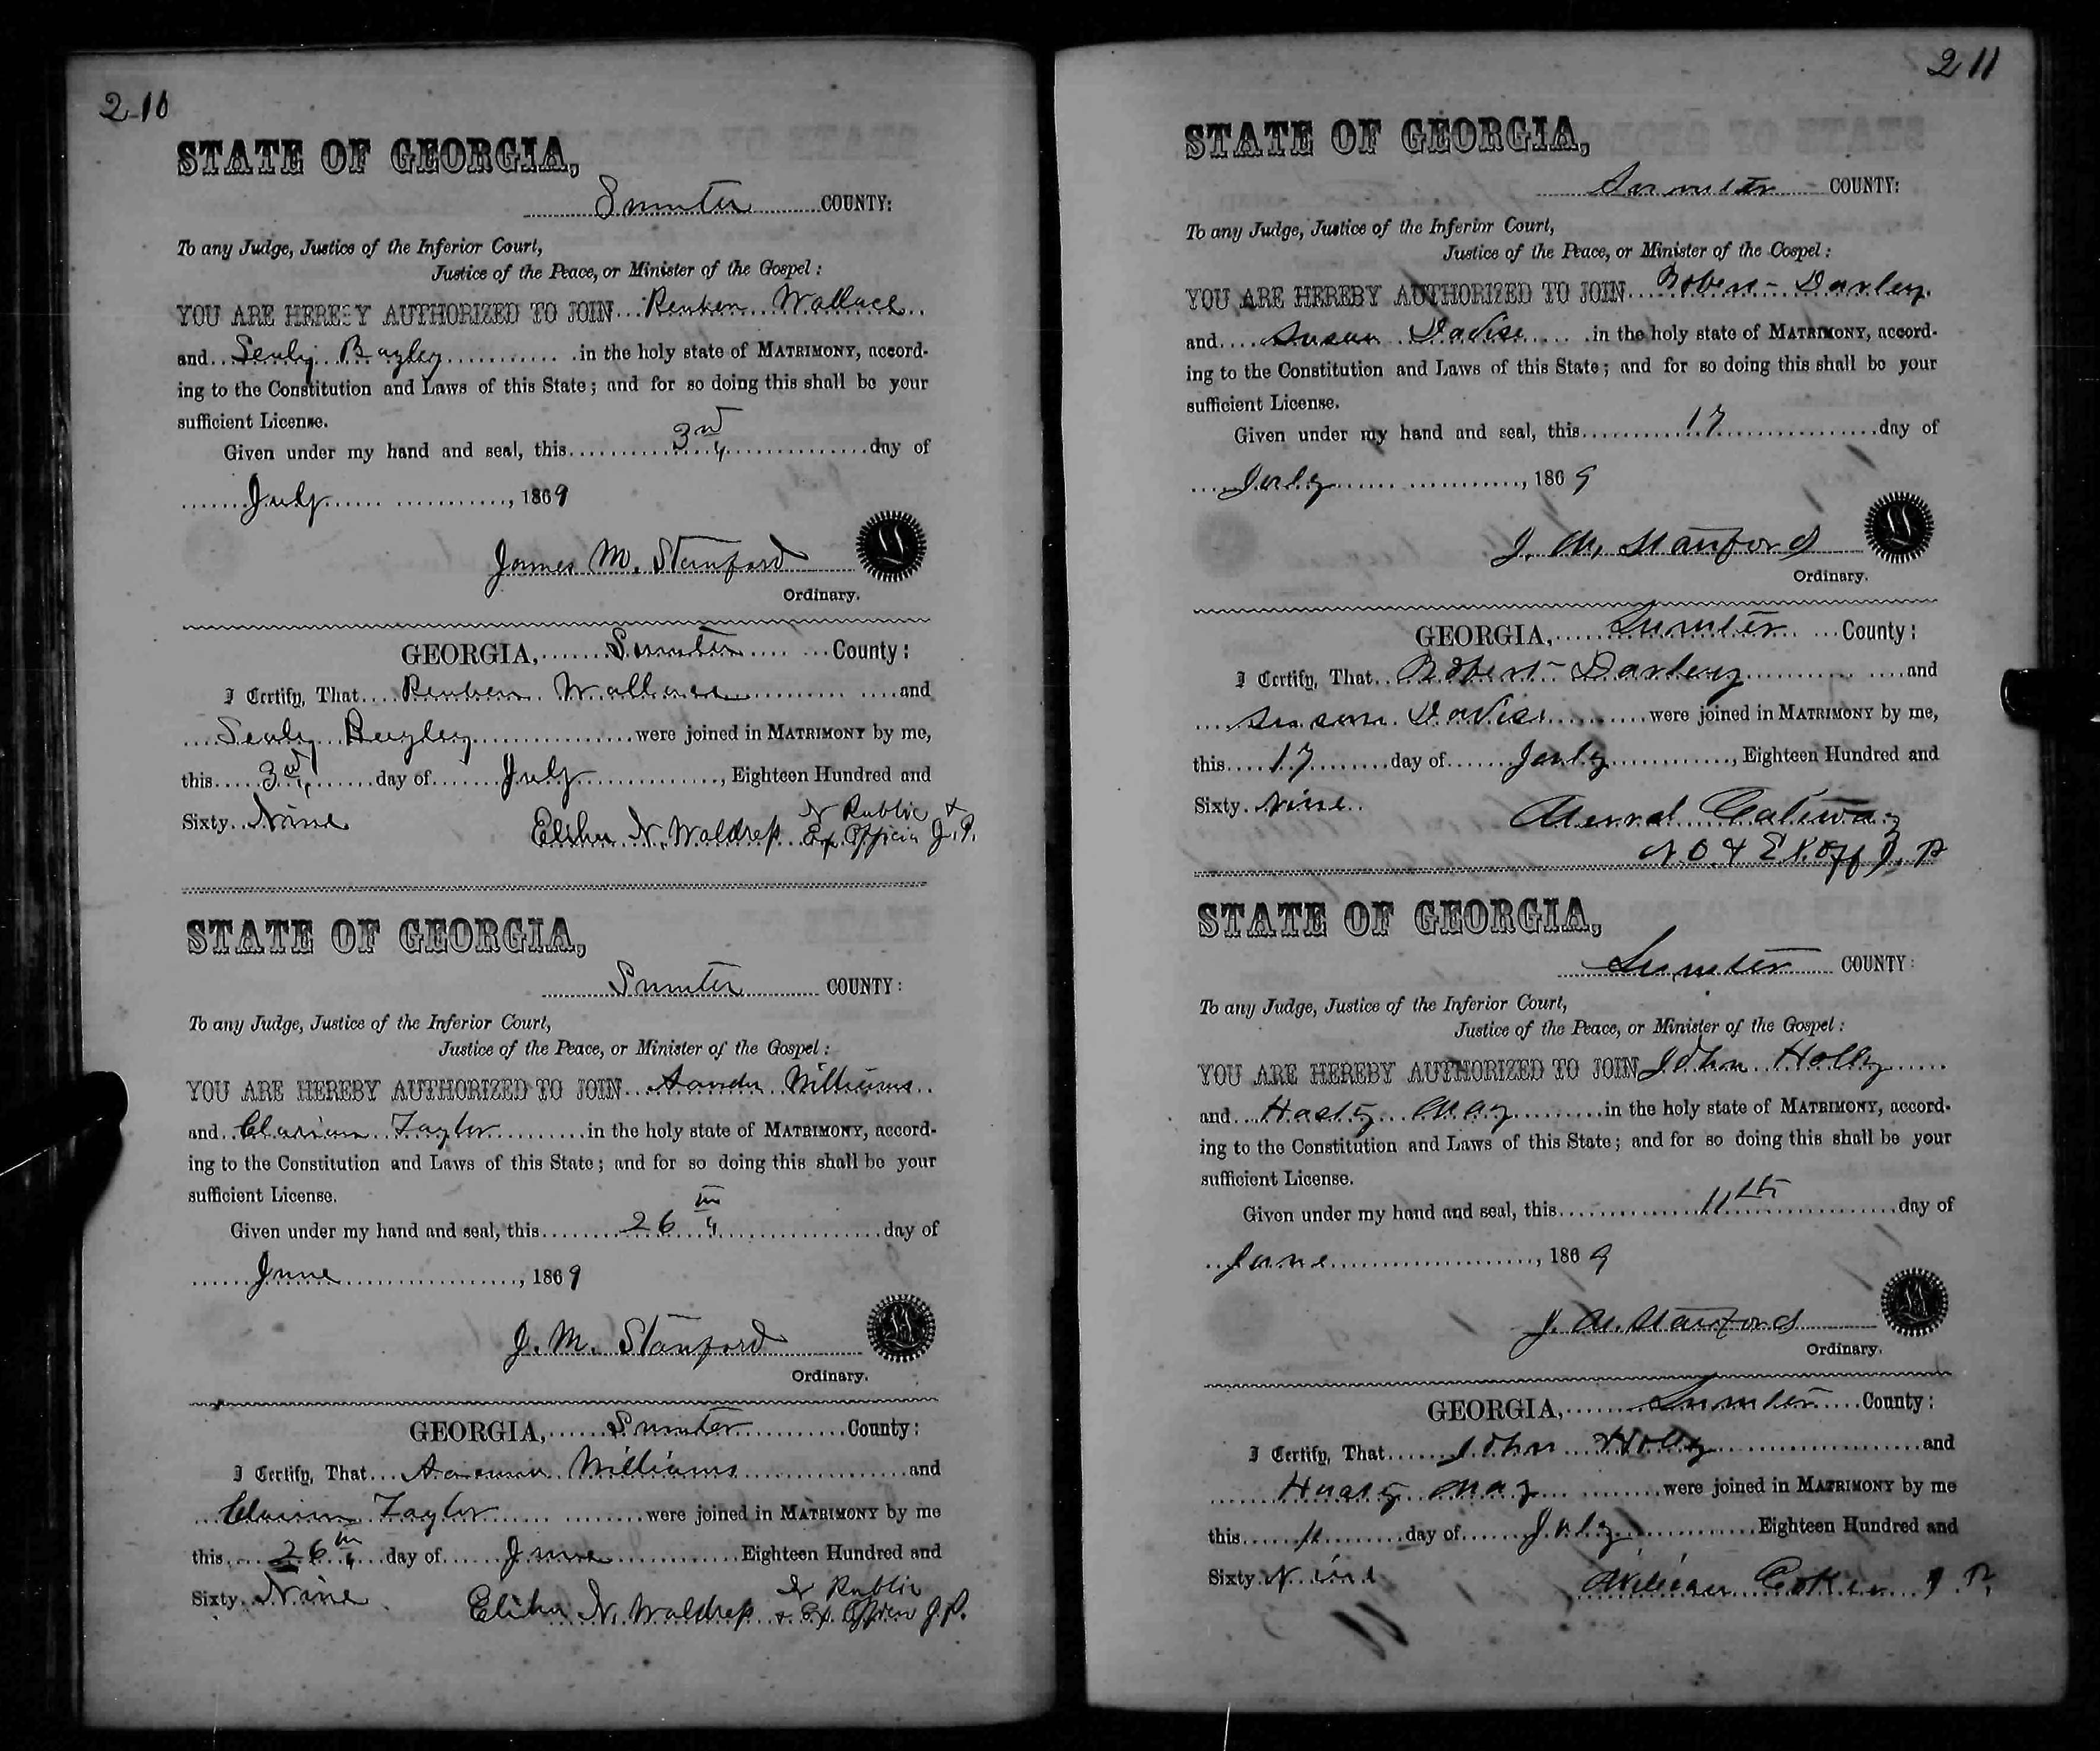 210
STATE OF GEORGIA,
Sumter COUNTY:
To any Judge, Justice of the Inferior Court,
Justice of the Peace, or Minister of the Gospel:
YOU ARE HEREBY AUTHORIZED TO JOIN Reuben Wallace
and Bagley in the holy state of MATRIMONY, accord-
ing to the Constitution and Laws of this State; and for so doing this shall be your
sufficient License.
Given under my hand and seal, this 3rd day of
July, 1869
James M. Stanford
Ordinary.
GEORGIA, Sumter County:
I Certify, That Reuben Wallace and
Bagley were joined in MATRIMONY by me,
this 3rd day of July, Eighteen Hundred and
Sixty Nine
N Public &
Elihu N. Waldrep Ex Officio J.P.
STATE OF GEORGIA,
Sumter COUNTY:
To any Judge, Justice of the Inferior Court,
Justice of the Peace, or Minister of the Gospel:
YOU ARE HEREBY AUTHORIZED TO JOIN Williams
and Taylor in the holy state of MATRIMONY, accord-
ing to the Constitution and Laws of this State; and for so doing this shall be your
sufficient License.
Given under my hand and seal, this 26th day of
June, 1869
J. M. Stanford
Ordinary.
GEORGIA, Sumter County:
I Certify, That Williams and
Taylor were joined in MATRIMONY by me
this 26th day of June Eighteen Hundred and
Sixty Nine
N Public
Elihu N. Waldrep & Ex Officio J.P.
211
STATE OF GEORGIA,
Sumter COUNTY:
To any Judge, Justice of the Inferior Court,
Justice of the Peace, or Minister of the Gospel:
YOU ARE HEREBY AUTHORIZED TO JOIN Robert Danley
and Susan Davise in the holy state of MATRIMONY, accord-
ing to the Constitution and Laws of this State; and for so doing this shall be your
sufficient License.
Given under my hand and seal, this 17 day of
July, 1869
J. M. Stanford
Ordinary.
GEORGIA, Sumter County:
I Certify, That Robert Danley and
Susan Davise were joined in MATRIMONY by me,
this 17 day of July, Eighteen Hundred and
Sixty Nine
& Ex Off J. P
STATE OF GEORGIA,
Sumter COUNTY:
To any Judge, Justice of the Inferior Court,
Justice of the Peace, or Minister of the Gospel:
YOU ARE HEREBY AUTHORIZED TO JOIN John Holly
and Hasty May in the holy state of MATRIMONY, accord-
ing to the Constitution and Laws of this State; and for so doing this shall be your
sufficient License.
Given under my hand and seal, this 11th day of
June, 1869
J. M. Stanford
Ordinary.
GEORGIA, Sumter County:
I Certify, That John Holly and
Hasty May were joined in MATRIMONY by me
this 11 day of July Eighteen Hundred and
Sixty Nine
William Coker J. P.